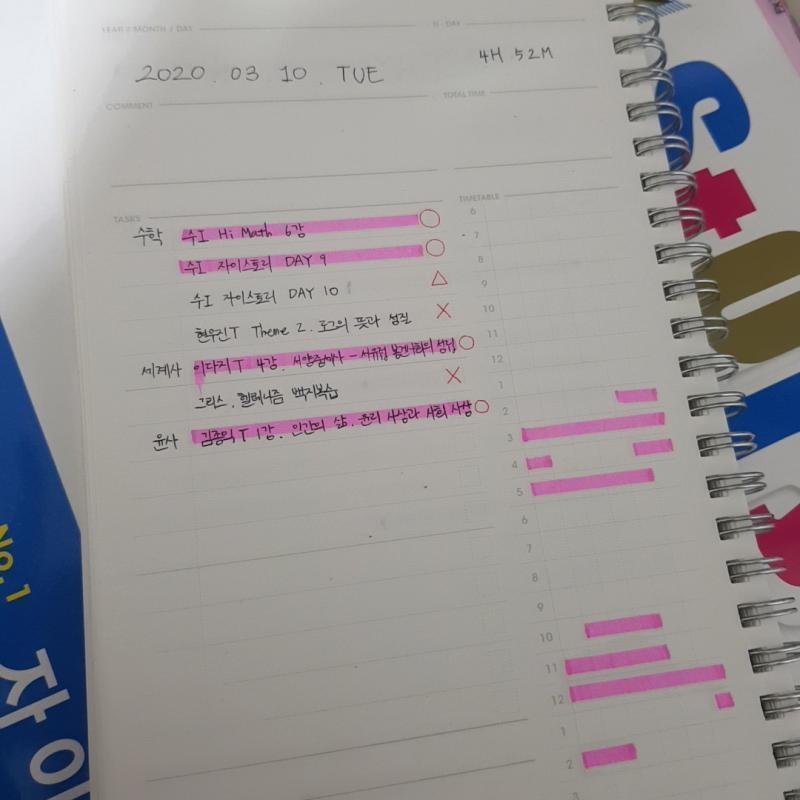 YEAR / MONTH / DAY
D - DAY
2020. 03. 10. TUE
4H 52M
COMMENT
TOTAL TIME
TASKS
TIMETABLE
수학 수I Hi Math 6강
수I 자이스토리 DAY 9
수I 자이스토리 DAY 10
현우진T Theme 2. 로그의 뜻과 성질
세계사 이다지T 4강. 서양중세사 - 서유럽 봉건사회의 성립
그리스. 헬레니즘 백지복습
윤사 김종익T 1강. 인간의 삶. 윤리 사상과 사회 사상
6
7
8
9
10
11
12
1
2
3
4
5
6
7
8
9
10
11
12
1
2
3
NO.1
자이